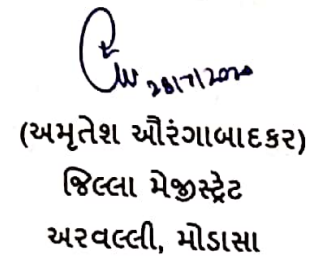 28/7/2020
(અમૃતેશ ઔરંગાબાદકર)
જિલ્લા મેજીસ્ટ્રેટ
અરવલ્લી, મોડાસા